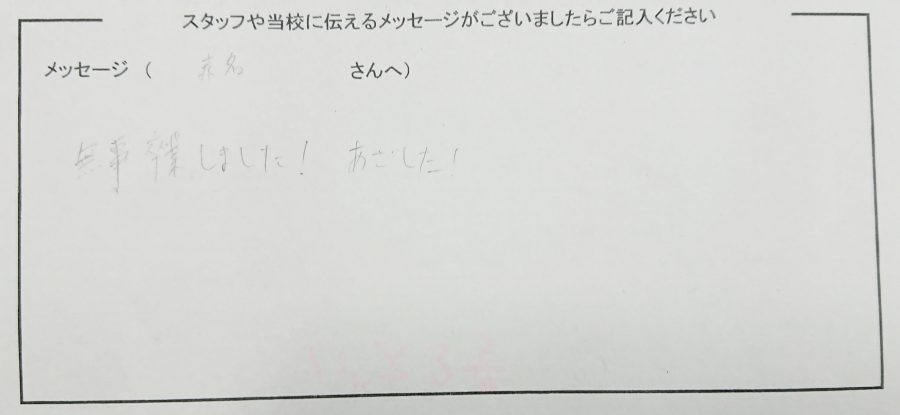 スタッフや当校に伝えるメッセージがございましたらご記入ください
メッセージ ( さんへ)
無事卒業しました! あざした!